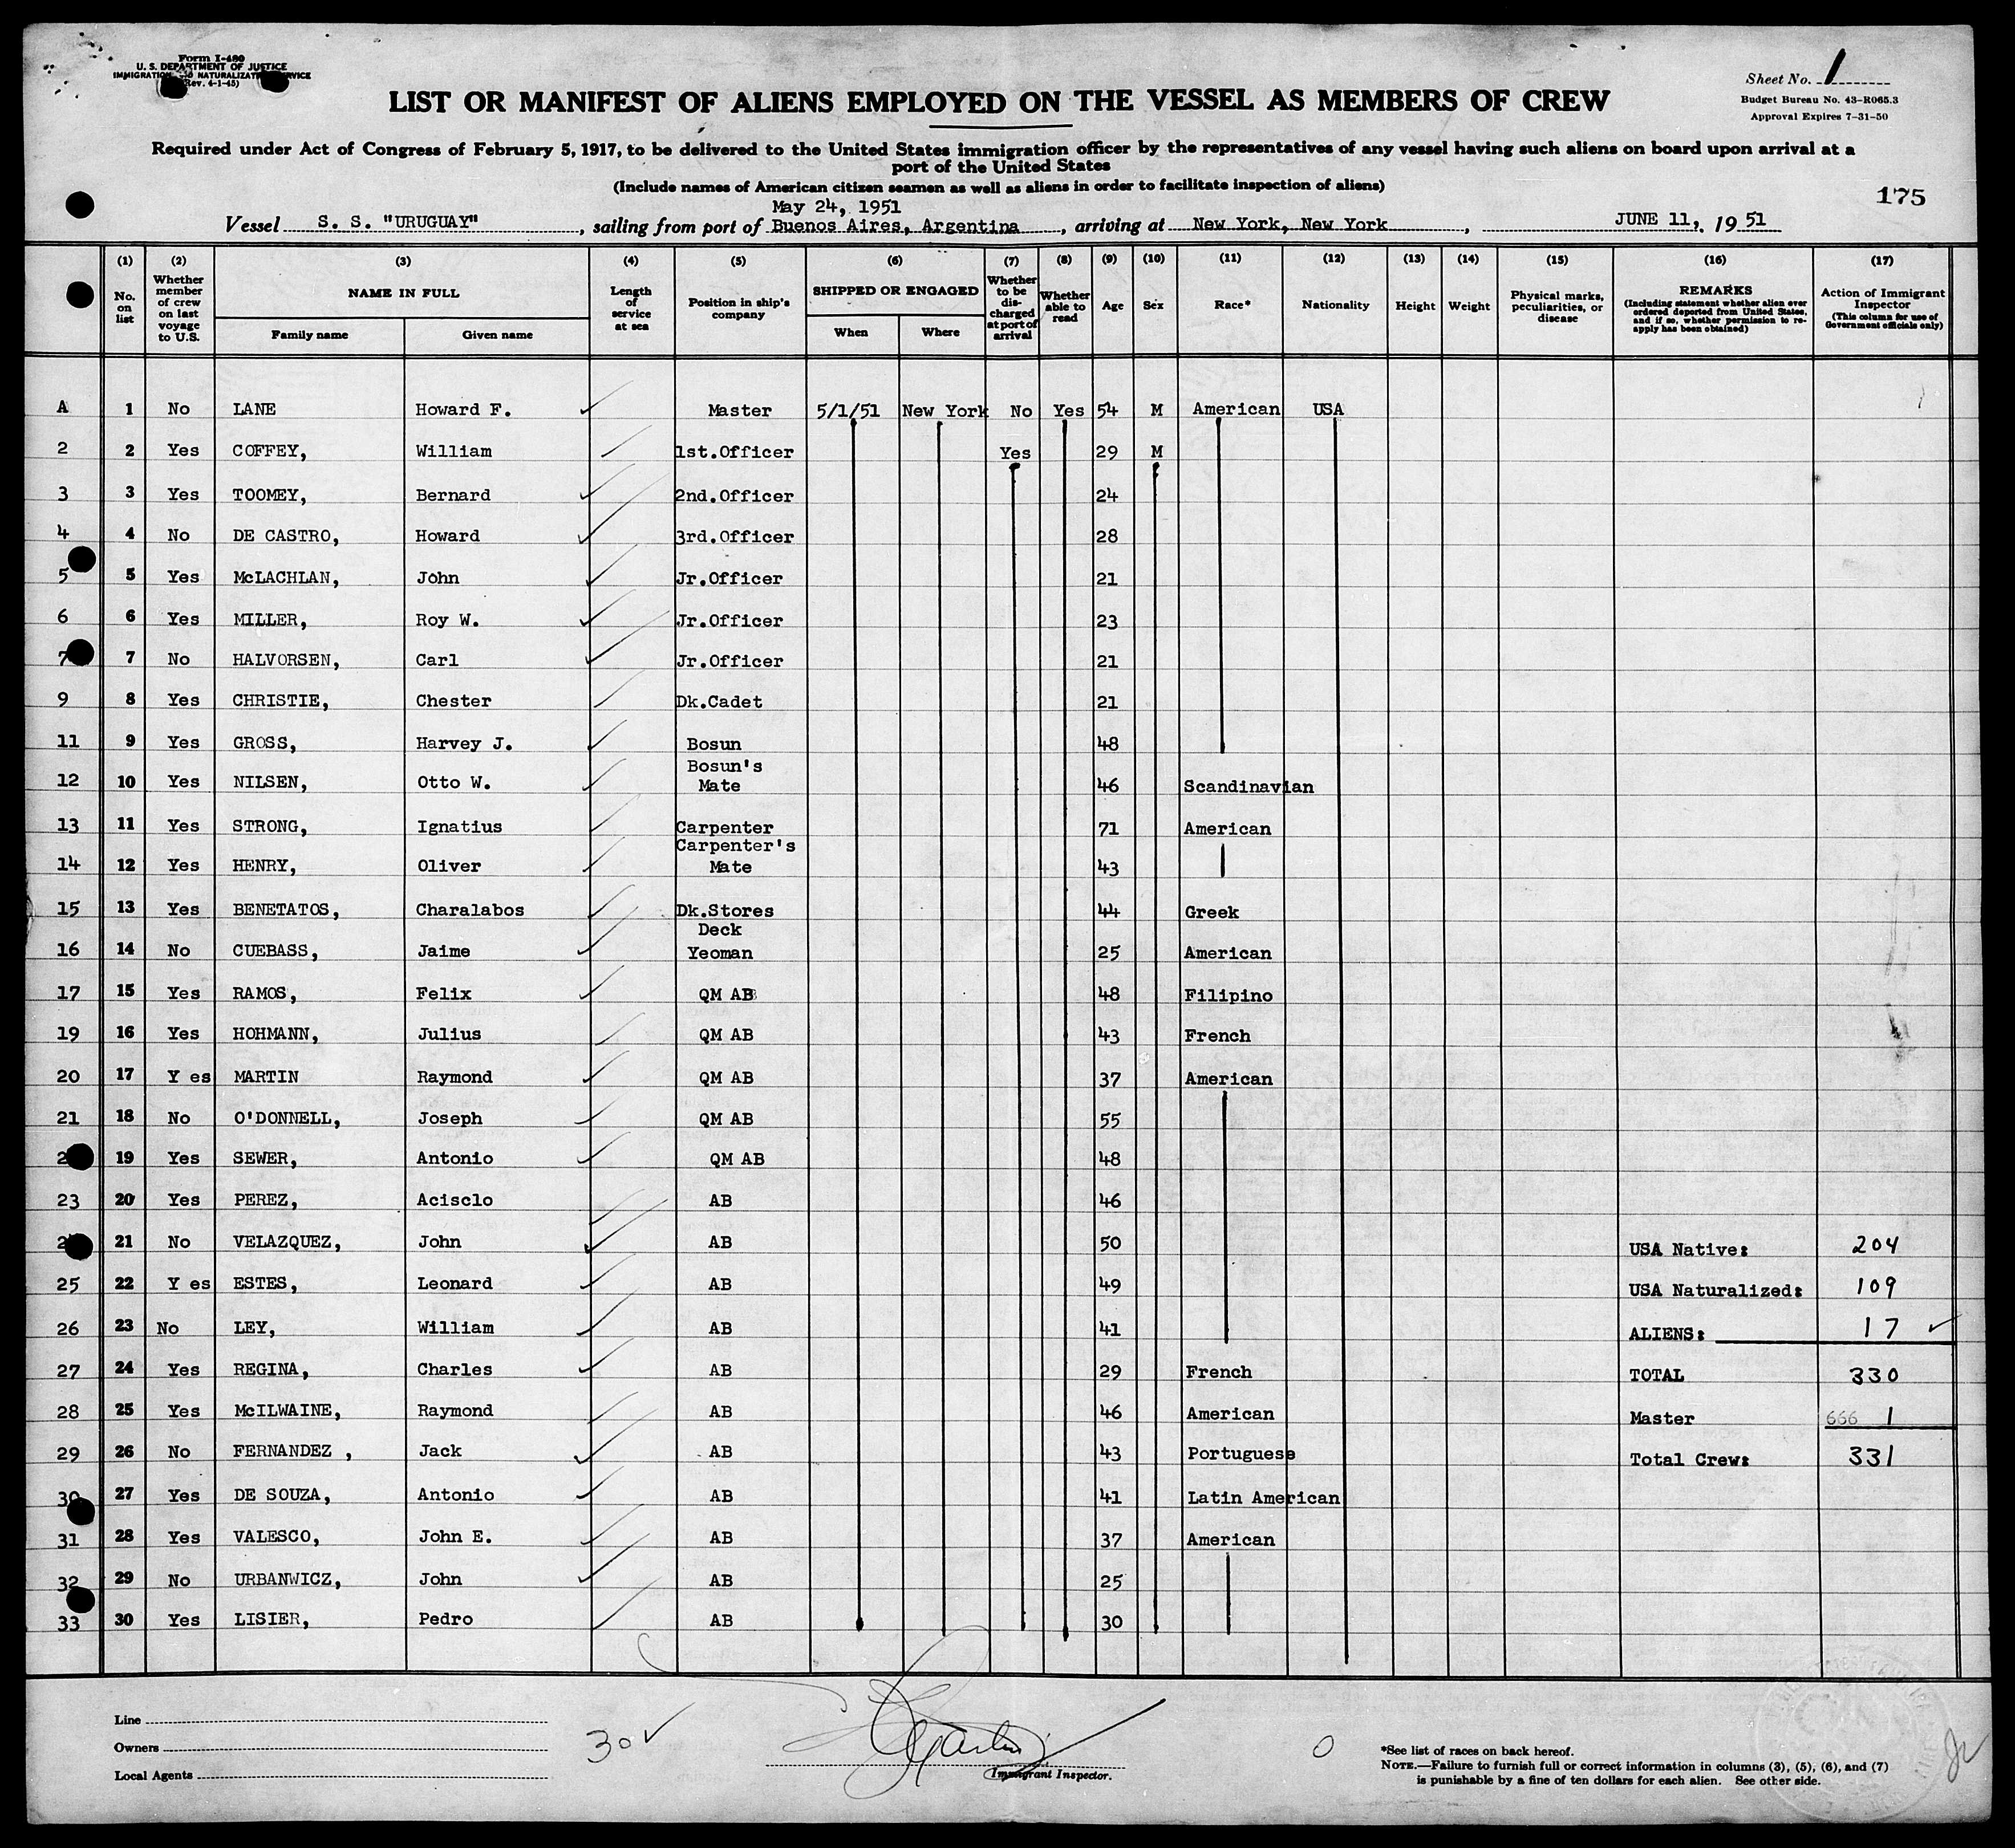 Form I-480
U. S. DEPARTMENT OF JUSTICE
IMMIGRATION AND NATURALIZATION SERVICE
(Rev. 4-1-45)
Sheet No. 1
Budget Bureau No. 43-R065.3
Approval Expires 7-31-50
LIST OR MANIFEST OF ALIENS EMPLOYED ON THE VESSEL AS MEMBERS OF CREW
Required under Act of Congress of February 5, 1917, to be delivered to the United States immigration officer by the representatives of any vessel having such aliens on board upon arrival at a
port of the United States
(Include names of American citizen seamen as well as aliens in order to facilitate inspection of aliens)
175
May 24, 1951
Vessel S. S. "URUGUAY", sailing from port of Buenos Aires, Argentina, arriving at New York, New York, JUNE 11, 1951
(1) No. on list
(2) Whether member of crew on last voyage to U.S.
(3) NAME IN FULL Family name Given name
(4) Length of service at sea
(5) Position in ship's company
(6) SHIPPED OR ENGAGED When Where
(7) Whether to be discharged at port of arrival
(8) Whether able to read
(9) Age
(10) Sex
(11) Race*
(12) Nationality
(13) Height
(14) Weight
(15) Physical marks, peculiarities, or disease
(16) REMARKS (Including statement whether alien ever ordered deported from United States, and if so, whether permission to reapply has been obtained)
(17) Action of Immigrant Inspector (This column for use of Government officials only)
A 1 No LANE Howard F. Master 5/1/51 New York No Yes 54 M American USA
2 2 Yes COFFEY, William 1st.Officer Yes 29 M
3 3 Yes TOOMEY, Bernard 2nd.Officer 24
4 4 No DE CASTRO, Howard 3rd.Officer 28
5 5 Yes McLACHLAN, John Jr.Officer 21
6 6 Yes MILLER, Roy W. Jr.Officer 23
7 7 No HALVORSEN, Carl Jr.Officer 21
9 8 Yes CHRISTIE, Chester Dk.Cadet 21
11 9 Yes GROSS, Harvey J. Bosun 48
12 10 Yes NILSEN, Otto W. Bosun's Mate 46 Scandinavian
13 11 Yes STRONG, Ignatius Carpenter 71 American
14 12 Yes HENRY, Oliver Carpenter's Mate 43
15 13 Yes BENETATOS, Charalabos Dk.Stores 44 Greek
16 14 No CUEBASS, Jaime Deck Yeoman 25 American
17 15 Yes RAMOS, Felix QM AB 48 Filipino
19 16 Yes HOHMANN, Julius QM AB 43 French
20 17 Y es MARTIN Raymond QM AB 37 American
21 18 No O'DONNELL, Joseph QM AB 55
19 Yes SEWER, Antonio QM AB 48
23 20 Yes PEREZ, Acisclo AB 46
21 No VELAZQUEZ, John AB 50 USA Native: 204
25 22 Y es ESTES, Leonard AB 49 USA Naturalized: 109
26 23 No LEY, William AB 41 ALIENS: 17
27 24 Yes REGINA, Charles AB 29 French TOTAL 330
28 25 Yes McILWAINE, Raymond AB 46 American Master 666 1
29 26 No FERNANDEZ , Jack AB 43 Portuguese Total Crew: 331
30 27 Yes DE SOUZA, Antonio AB 41 Latin American
31 28 Yes VALESCO, John E. AB 37 American
32 29 No URBANWICZ, John AB 25
33 30 Yes LISIER, Pedro AB 30
Line
Owners
Local Agents
30
Immigrant Inspector.
0
*See list of races on back hereof.
NOTE.—Failure to furnish full or correct information in columns (3), (5), (6), and (7)
is punishable by a fine of ten dollars for each alien. See other side.